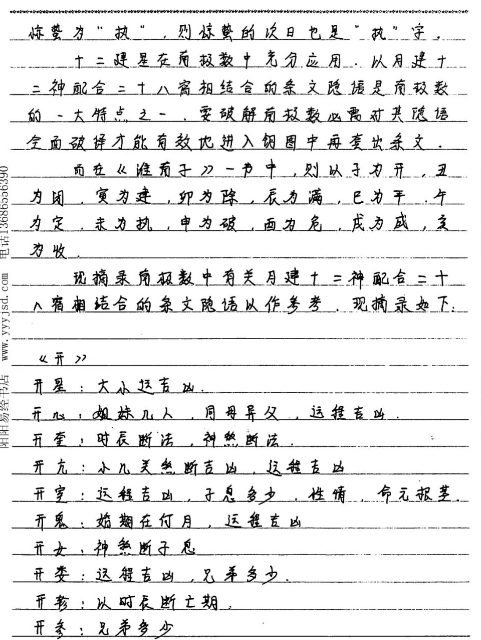 惊蛰为“执”，则惊蛰的次日也是“执”字。
十二建星在南极数中充分应用。以月建十
二神配合二十八宿相结合的条文隐语是南极数
的一大特点之一，要破解南极数必需对其隐语
全面破译才能有效地进入钥图中再查出条文。
而在《淮南子》一书中，则以子为开，丑
为闭，寅为建，卯为除，辰为满，巳为平，午
为定，未为执，申为破，酉为危，戌为成，亥
为收。
现摘录南极数中有关月建十二神配合二十
八宿相结合的条文隐语以作参考，现摘录如下：
《开》
开星：大小运吉凶。
开心：姐妹几人，同母异父，运程吉凶．
开奎：时辰断法，神煞断法．
开亢：小儿关煞断吉凶，运程吉凶
开室：运程吉凶，子息多少，性情，命元根基．
开鬼：婚期在何月，运程吉凶
开女：神煞断子息
开娄：运程吉凶，兄弟多少．
开轸：以时辰断亡期．
开参：兄弟多少
阴阳易经书店 www.yyyjsd.com 电话13686556390